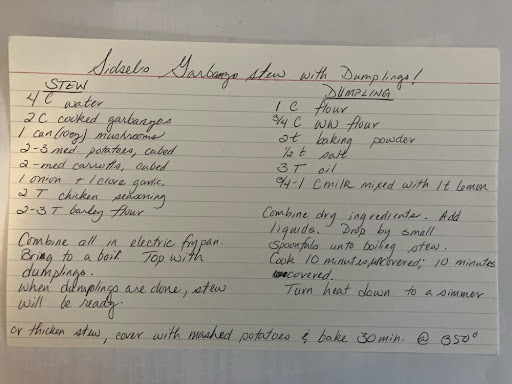 Sidsel's Garbanzo stew with Dumplings!
STEW
4 C water
2 C cooked garbanzos
1 can (10oz) mushrooms
2-3 med. potatoes, cubed
2-med carrotts, cubed
1 onion + 1 clove garlic
2 T chicken seasoning
2-3 T barley flour
Combine all in electric frypan.
Bring to a boil. Top with
dumplings.
When dumplings are done, stew
will be ready.
DUMPLING
1 C flour
3/4 C WW flour
2 t baking powder
1/2 t salt
3 T oil
3/4-1 C milk mixed with 1 t lemon
Combine dry ingredients. Add
liquids. Drop by small
Spoonfuls unto boiling stew.
Cook 10 minutes, uncovered; 10 minutes
covered.
Turn heat down to a simmer
or thicken stew, cover with mashed potatoes & bake 30 min. @ 350°